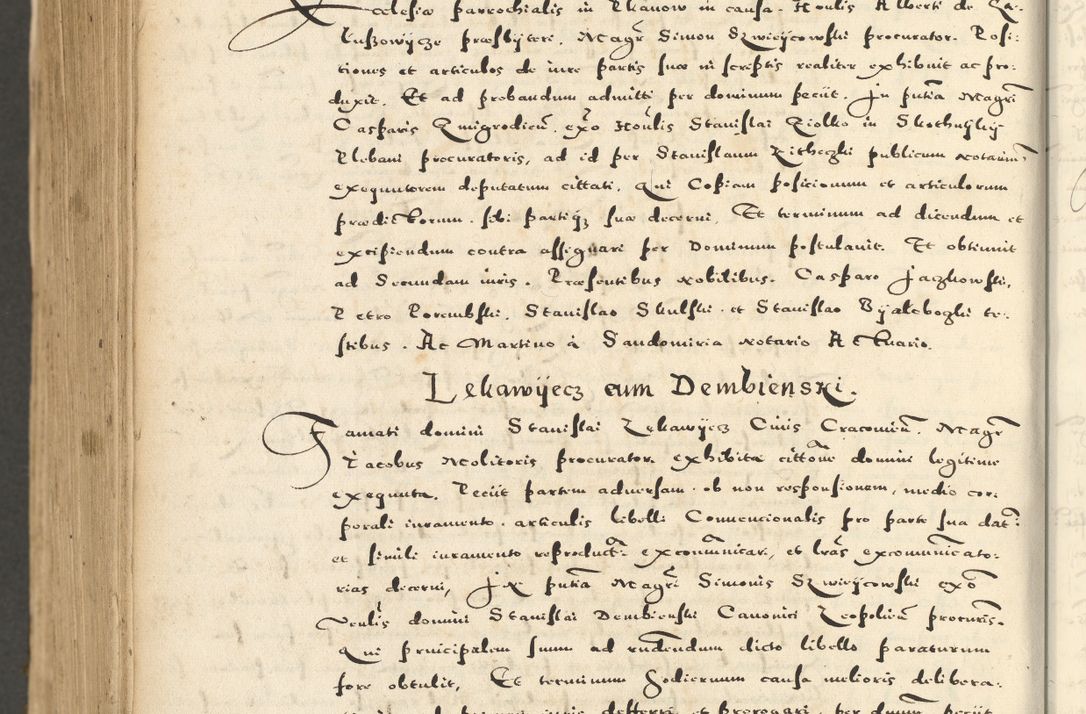 Ecclesiæ parrochialis in Lkanow in causa. Honlis Alberti de Za-
kuszowijcze præsbyteri. Magr Simon Szwieijcowski procurator. Posi:
tiones et articulos de iure partis suæ in scriptis realiter exhibuit ac pro:
duxit. Et ad probandum admitti per dominum peciit. In putia Magri
Casparis Zmigrodicen. exo Honlis Stanislai Ziolko in Skothnijkij
Plebani procuratoris, ad id per Stanislaum Zitheczki publicum notarium
exequutorem deputatum cittati. Qui Copiam posicionum et articulorum
prædictorum. sibi partiqz suæ decerni. Et terminum ad dicendum et
excipiendum contra assignari per Dominum postulauit. Et obtinuit
ad Secundam iuris. Præsentibus nobilibus. Casparo Jaczkowski,
Petro Porembski. Stanislao Skulski. et Stanislao Byalebogki te-
stibus. Ac Martino à Sandomiria notario Actuario.
Lekawijecz cum Dembienski.
Famati domini Stanislai Lekawijecz Ciuis Cracouien. Magr
Jacobus Molitoris procurator. exhibita cittone domini legitime
exequuta. Peciit partem aduersam. ob non responsionem, medio cor-
porali iuramento. articulis libelli Conuencionalis pro parte sua dat:
et simili iuramento reproduct: excommunicari, et lras excommunicato-
rias decerni, In putia Magri Simonis Szwieijcowski exo
Venlis domini Stanislai Dembienski Canonici Leopolien procuris.
Qui principalem suum ad rndendum dicto libello paraturum
fore obtulit, Et terminum hodiernum causa melioris delibera-
differri et prorogari. per dnum peciit